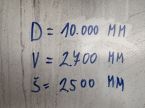 D = 10.000 MM
V = 2.700 MM
Š = 2500 MM